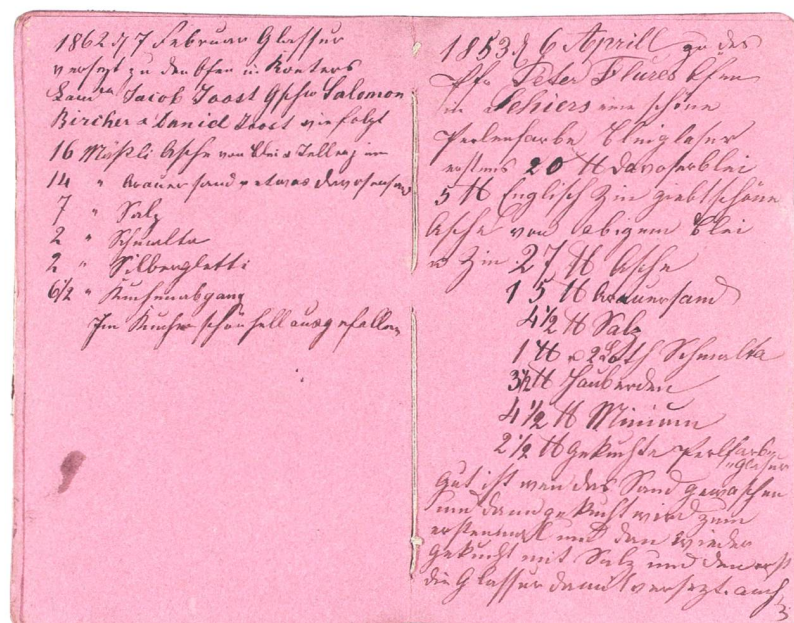 1862 d 7 Februar Glassur
versezt zu den Ofen in Konters
Jacob Joost Gschw Salomon
Bircher & Daniel Joost wie folgt
16 Mässli Asche von Blei
14 " Arauersand etwas davosersand
7 " Salz
2 " Schmalta
2 " Silbergletti
6 1/2 " Kuchenabgang
Im Kuchen schön hell ausgefallen
1853 d 6 Aprill zu des
Peter Flüres Ofen
in Schiers eine schöne
Perlenfarbe Bleiglasur
erstens 20 ℔ Davoserblei
5 ℔ Englisch Zin giebt schöne
Asche von obigem Blei
u Zin 27 ℔ Asche
15 ℔ Arauersand
4 1/2 ℔ Salz
1 ℔ 2 Loth Schmalta
3 1/2 ℔ Hauberden
4 1/2 ℔ Minium
2 1/2 ℔ gekuchte Perlfarb
glasur
Gut ist wen das Sand gewaschen
und dann gekucht wird zum
erstenmall und dan wieder
gekucht mit Salz und dan erst
die Glassur damit versezt. auch
3